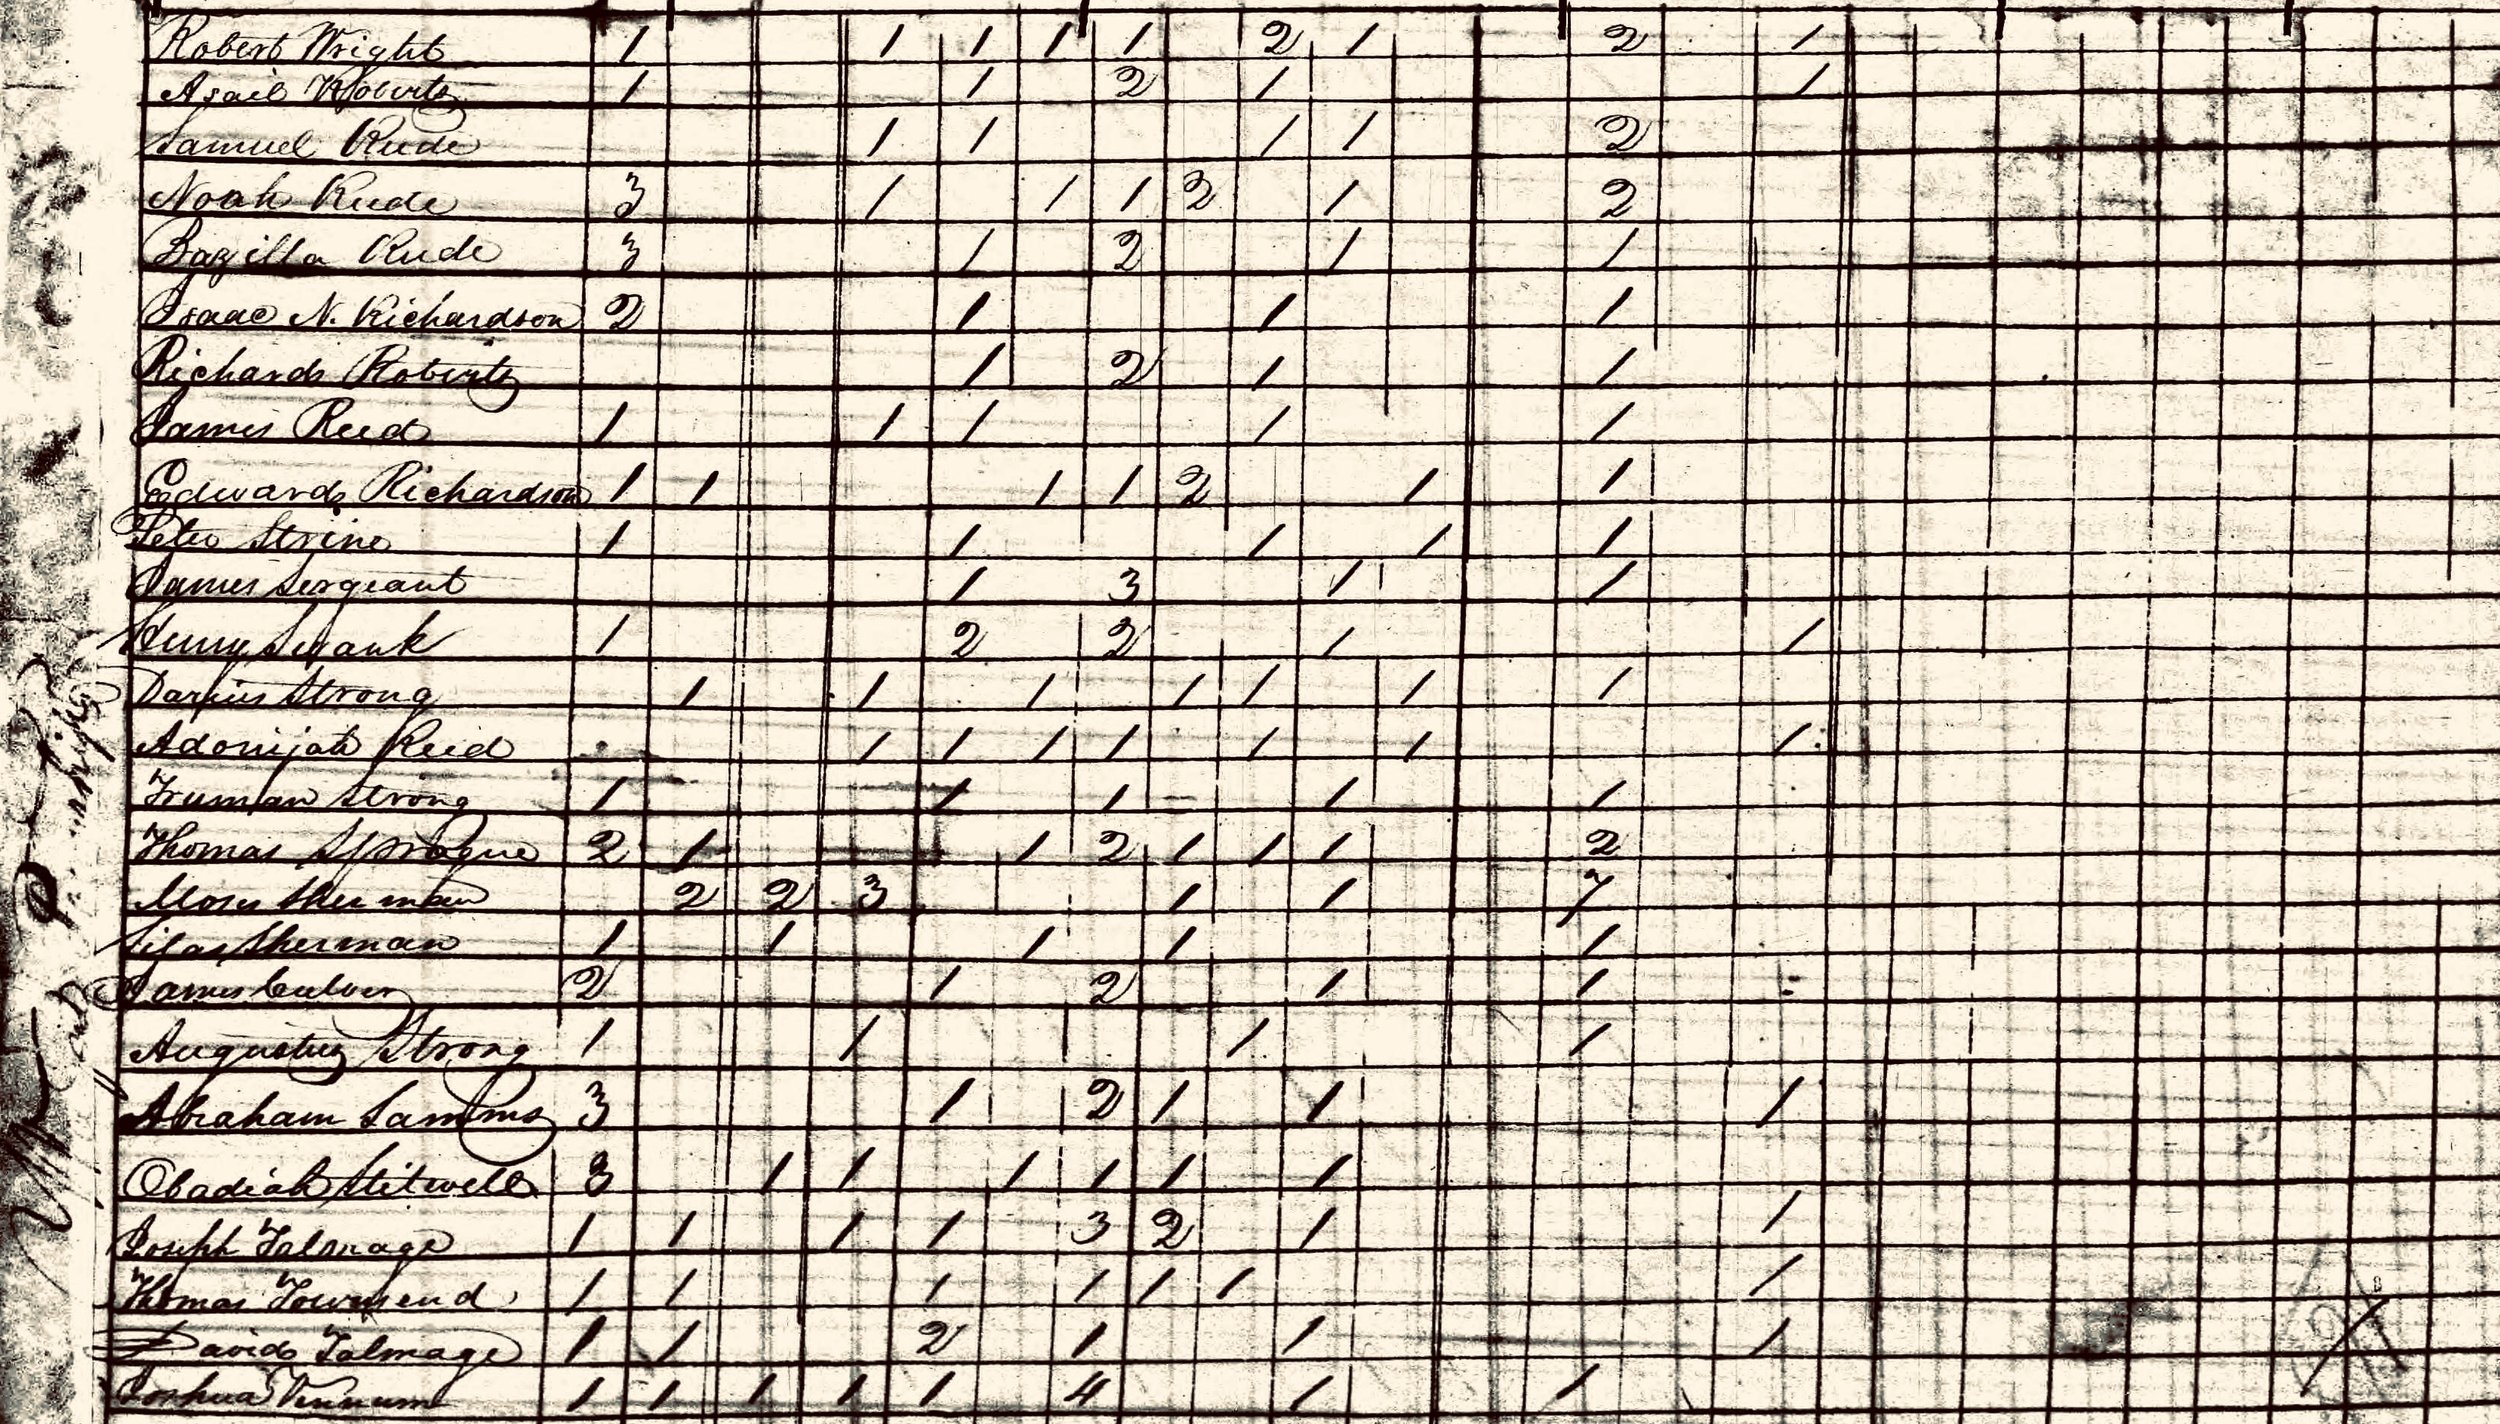 Robert Wright 1 1 1 1 1 2 1 2 1
Asail Roberts 1 1 2 1 1
Samuel Rude 1 1 1 1 2
Noah Rude 3 1 1 1 2 1 2
Bazilla Rude 3 1 2 1 1
Isaac N. Richardson 2 1 1 1
Richard Roberts 1 2 1 1
James Reed 1 1 1 1 1
Edward Richardson 1 1 1 1 2 1 1
Peter Strine 1 1 1 1 1
James Sergeant 1 3 1 1
Henry Swank 1 2 2 1 1
Darius Strong 1 1 1 1 1 1 1
Adonijah Reid 1 1 1 1 1 1 1
Truman Strong 1 1 1 1 1
Thomas Sprague 2 1 1 2 1 1 1 2
Moses Sherman 2 2 3 1 1 7
Silas Sherman 1 1 1 1 1
James Culver 2 1 2 1 1
Augustus Strong 1 1 1 1
Abraham Samms 3 1 2 1 1 1
Obadiah Stilwell 3 1 1 1 1 1 1
Joseph Talmage 1 1 1 1 3 2 1 1
Thomas Townsend 1 1 1 1 1 1 1
David Talmage 1 1 2 1 1 1
Joshua 1 1 1 1 1 4 1 1